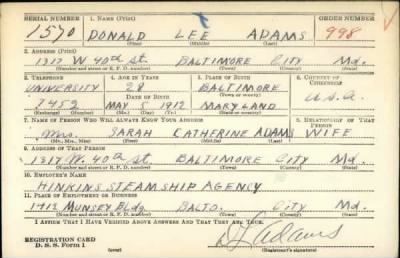 SERIAL NUMBER 1. NAME (Print) ORDER NUMBER
1570 DONALD LEE ADAMS 998
(First) (Middle) (Last)
2. ADDRESS (Print)
1317 W 40th St. BALTIMORE CITY Md.
(Number and street or R. F. D. number) (Town) (County) (State)
3. TELEPHONE 4. AGE IN YEARS 5. PLACE OF BIRTH 6. COUNTRY OF CITIZENSHIP
UNIVERSITY 28 BALTIMORE
DATE OF BIRTH (Town or county)
7452 MAY 5 1912 MARYLAND U.S.A.
(Exchange) (Number) (Mo.) (Day) (Yr.) (State or country)
7. NAME OF PERSON WHO WILL ALWAYS KNOW YOUR ADDRESS 8. RELATIONSHIP OF THAT PERSON
Mrs. SARAH CATHERINE ADAMS WIFE
(Mr., Mrs., Miss) (First) (Middle) (Last)
9. ADDRESS OF THAT PERSON
1317 W. 40th St. BALTIMORE CITY Md.
(Number and street or R. F. D. number) (Town) (County) (State)
10. EMPLOYER'S NAME
HINKINS STEAMSHIP AGENCY
11. PLACE OF EMPLOYMENT OR BUSINESS
1912 MUNSEY Bldg. BALTO. CITY Md.
(Number and street or R. F. D. number) (Town) (County) (State)
I AFFIRM THAT I HAVE VERIFIED ABOVE ANSWERS AND THAT THEY ARE TRUE.
REGISTRATION CARD
D. S. S. Form 1 (over) D L Adams
(Registrant's signature)